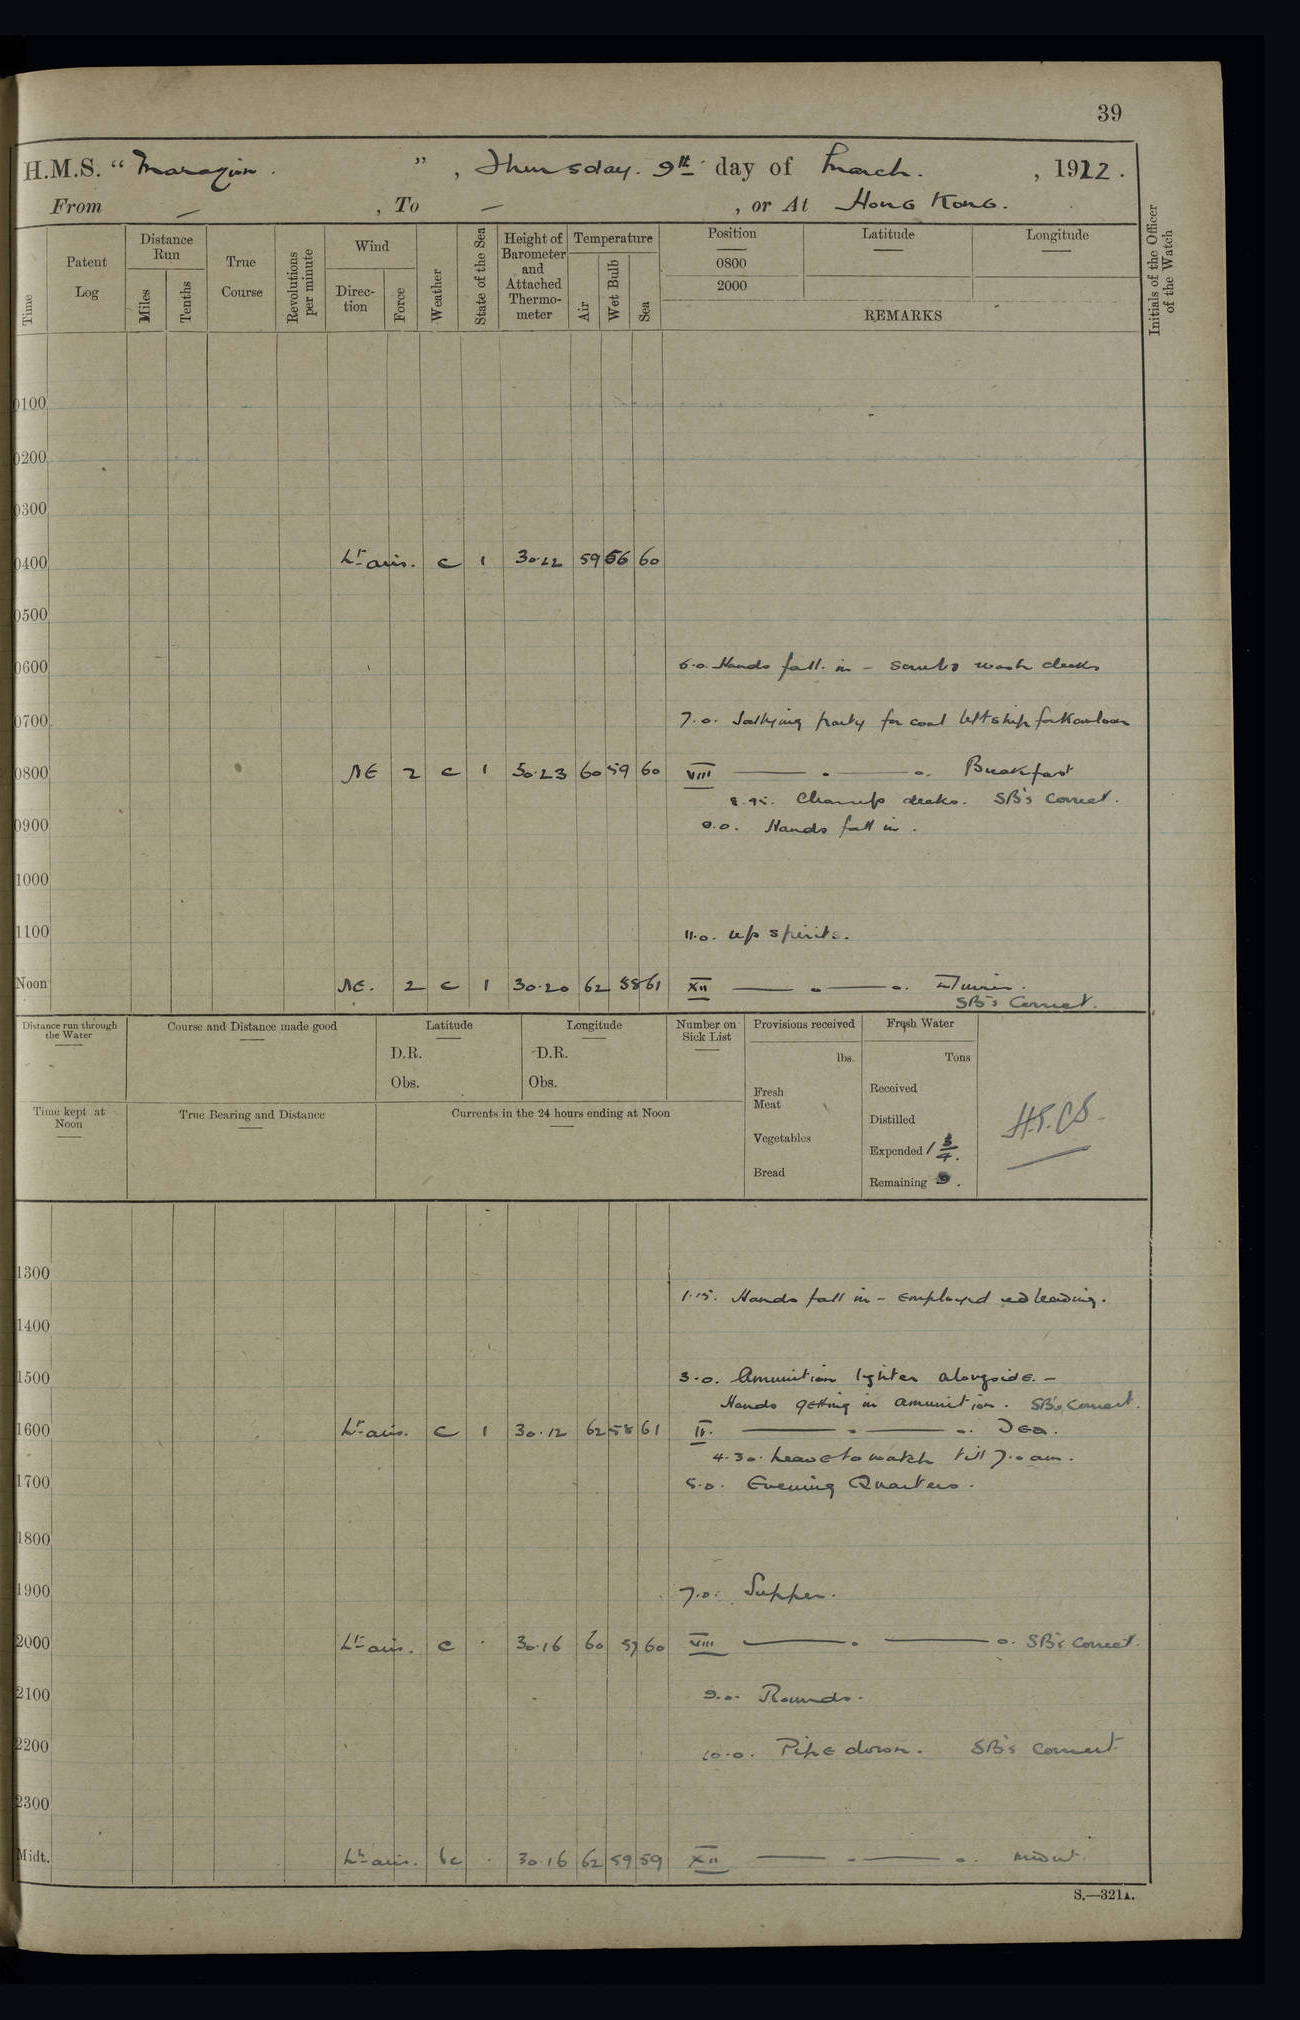 39
H.M.S. "Marazion.", Thursday. 9th day of March., 1922.
From —, To —, or At Hong Kong.
Time
Patent Log
Distance Run
Miles
Tenths
True Course
Revolutions per minute
Wind
Direction
Force
Weather
State of the Sea
Height of Barometer and Attached Thermometer
Temperature
Air
Wet Bulb
Sea
Position
0800
2000
Latitude
Longitude
REMARKS
Initials of the Officer of the Watch
0100
0200
0300
0400 Lt airs. c 1 30.22 59 56 60
0500
0600 6.0. Hands fall in - scrub & wash decks
0700 7.0. party for coal left ship for Kowloon
0800 NE 2 c 1 30.23 60 59 60 VIII — o — o. Breakfast
Clear up decks. SB's Correct.
0900 9.0. Hands fall in.
1000
1100 11.0. Up spirits.
Noon NE. 2 c 1 30.20 62 58 61 XII — o — o. Dinner.
SB's Correct.
Distance run through the Water
Course and Distance made good
Latitude
D.R.
Obs.
Longitude
D.R.
Obs.
Number on Sick List
Provisions received
lbs.
Fresh Meat
Vegetables
Bread
Fresh Water
Tons
Received
Distilled
Expended 1 3/4.
Remaining 9.
Time kept at Noon
True Bearing and Distance
Currents in the 24 hours ending at Noon
1300 1.15. Hands fall in - employed red leading.
1400
1500 3.0. Amunition lighter alongside. -
Hands getting in amunition. SB's Correct.
1600 Lt airs. c 1 30.12 62 58 61 IV. — o — o. Tea.
4.30. Leave to watch till 7.0 am.
1700 5.0. Evening Quarters.
1800
1900 7.0. Supper.
2000 Lt airs. c . 30.16 60 57 60 VIII — o — o. SB's Correct.
2100 9.0. Rounds.
2200 10.0. Pipe down. SB's Correct.
2300
Midt. Lt airs. bc . 30.16 62 59 59 XII — o — o.
S.—321A.